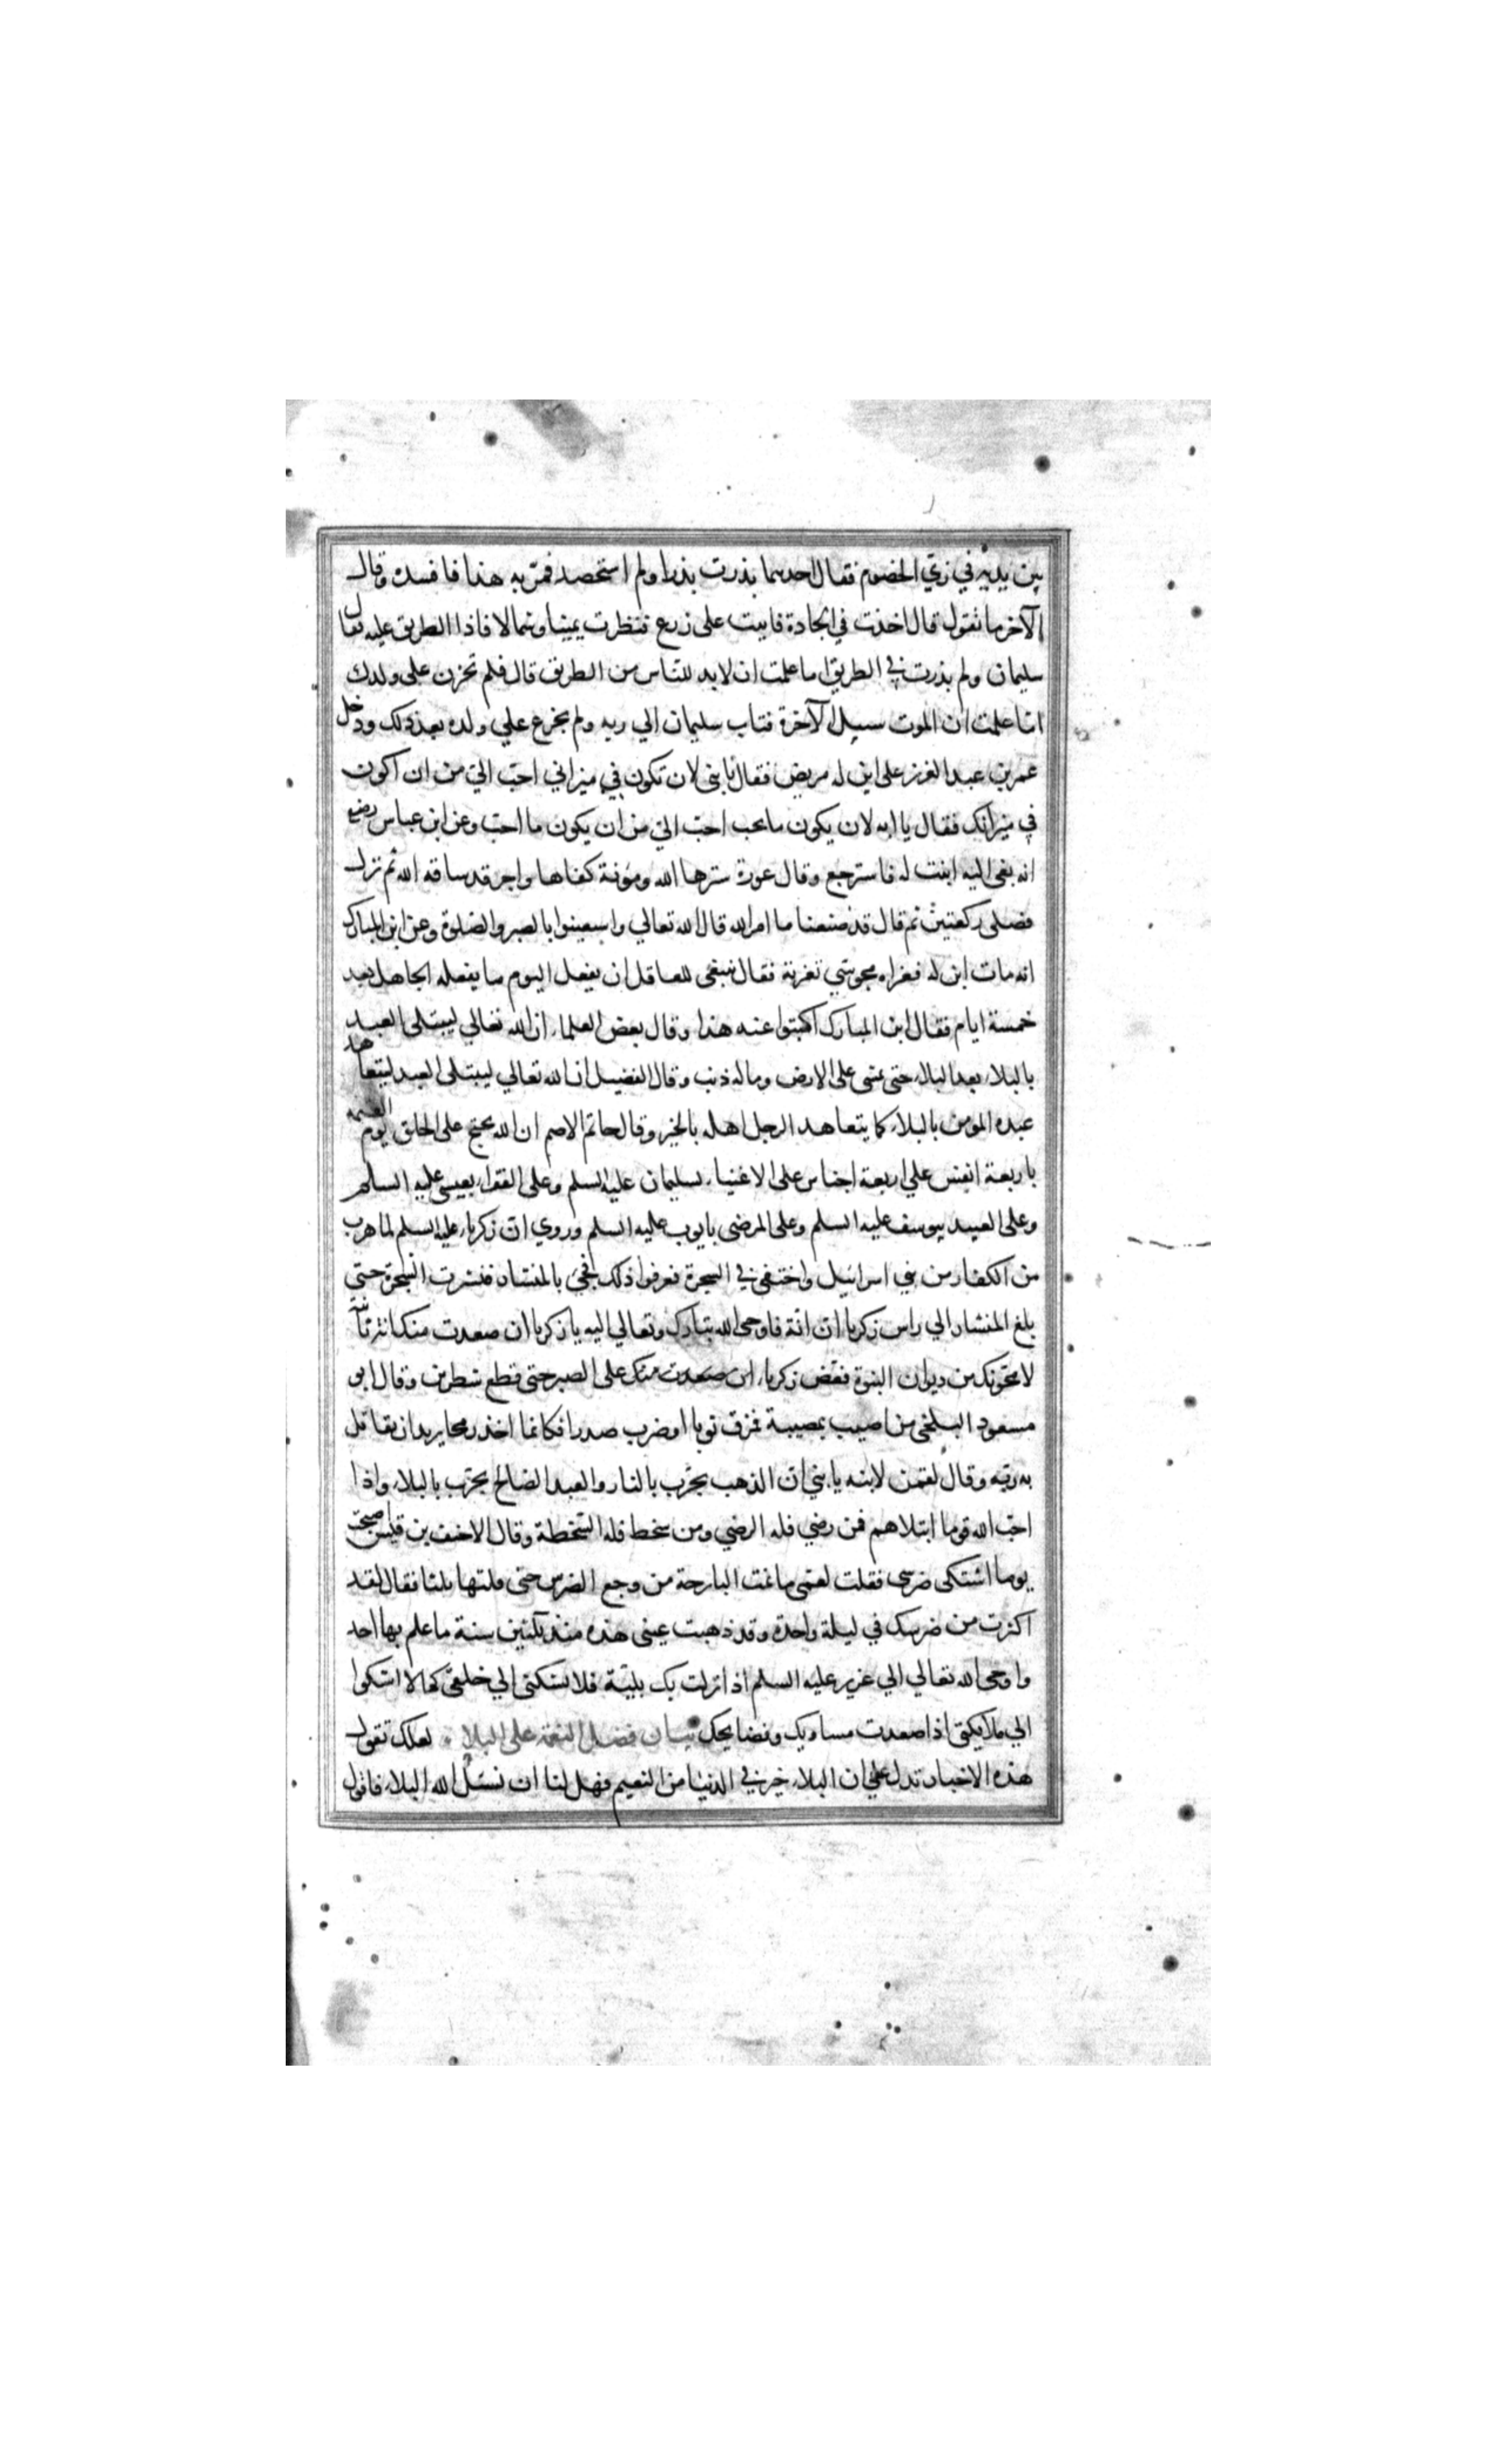 بين يديه في زي الخصوم فقال احدهما بذرت بذرا ولم استحصد فمر به هذا فافسده وقال
الآخر ما تقول قال اخذت في الجادة فاتيت على زرع فنظرت يمينا وشمالا فاذا الطريق عليه فقال
سليمان ولم بذرت في الطريق اما علمت ان لابد للناس من الطريق قال فلم تحزن على ولدك
اما علمت ان الموت سبيل الآخرة فتاب سليمان الي ربه ولم يجزع علي ولده بعد ذلك ودخل
عمر بن عبد العزيز على ابن له مريض فقال يا بنى لان تكون في ميزاني احب الي من ان اكون
في ميزانك فقال يا ابه لان يكون ما تحب احب الي من ان يكون ما احب وعن ابن عباس رضي
انه نعى اليه ابنت له فاسترجع وقال عورة سترها الله ومؤنة كفاها واجر قد ساقه الله ثم نزل
فصلى ركعتين ثم قال قد صنعنا ما امر الله قال الله تعالي واستعينوا بالصبر والصلوة وعن ابن المبارك
انه مات ابن له فعزاه مجوسي تعزية فقال ينبغي للعاقل ان يفعل اليوم ما يفعله الجاهل بعد
خمسة ايام فقال ابن المبارك اكتبوا عنه هذا وقال بعض العلماء ان الله تعالي ليبتلى العبد
بالبلاء بعد البلاء حتى يمشى على الارض وماله ذنب وقال الفضيل ان الله تعالي ليبتلى العبد ليتعاهد
عبده المومن بالبلاء كما يتعاهد الرجل اهله بالخير وقال حاتم الاصم ان الله يحتج على الخلق يوم القيمة
باربعة انفس علي اربعة اجناس على الاغنياء بسليمان عليه السلم وعلى الفقراء بعيسى عليه السلم
وعلى العبيد بيوسف عليه السلم وعلى المرضى بايوب عليه السلم وروي ان زكرياء عليه السلم لما هرب
من الكفار من بني اسرائيل واختفى في الشجرة فعرفوا ذلك فجئ بالمنشار فنشرت الشجرة حتى
بلغ المنشار الي راس زكريا ان انة فاوحى الله تبارك وتعالي اليه يا زكريا ان صعدت منك انة ثانية
لامحونك من ديوان النبوة فعض زكرياء ان صعدت منك على الصبر حتى قطع شطرين وقال ابو
مسعود البلخي من اصيب بمصيبة فمزق ثوبا او ضرب صدرا فكانما اخذ رمحا يريد ان يقاتل
به ربه وقال لقمن لابنه يا بني ان الذهب يجرب بالنار والعبد الصالح يجرب بالبلاء واذا
احب الله قوما ابتلاهم فمن رضي فله الرضي ومن سخط فله السخطة وقال الاحنف بن قيس اصبحت
يوما اشتكى ضرسى فقلت لعمى ما نمت البارحة من وجع الضرس حتى قلتها ثلثا فقال لقد
اكثرت من ضرسك في ليلة واحدة وقد ذهبت عينى هذه منذ ثلثين سنة ما علم بها احد
واوحى الله تعالي الي عزير عليه السلم اذا نزلت بك بلية فلا تشكنى الي خلقى كما لا اشكوا
الي ملائكتى اذا صعدت مساويك وفضايحك بيان فضل النعمة على البلاء لعلك تقول
هذه الاخبار تدل علي ان البلاء خير في الدنيا من النعيم فهل لنا ان نسئل الله البلاء فاقول